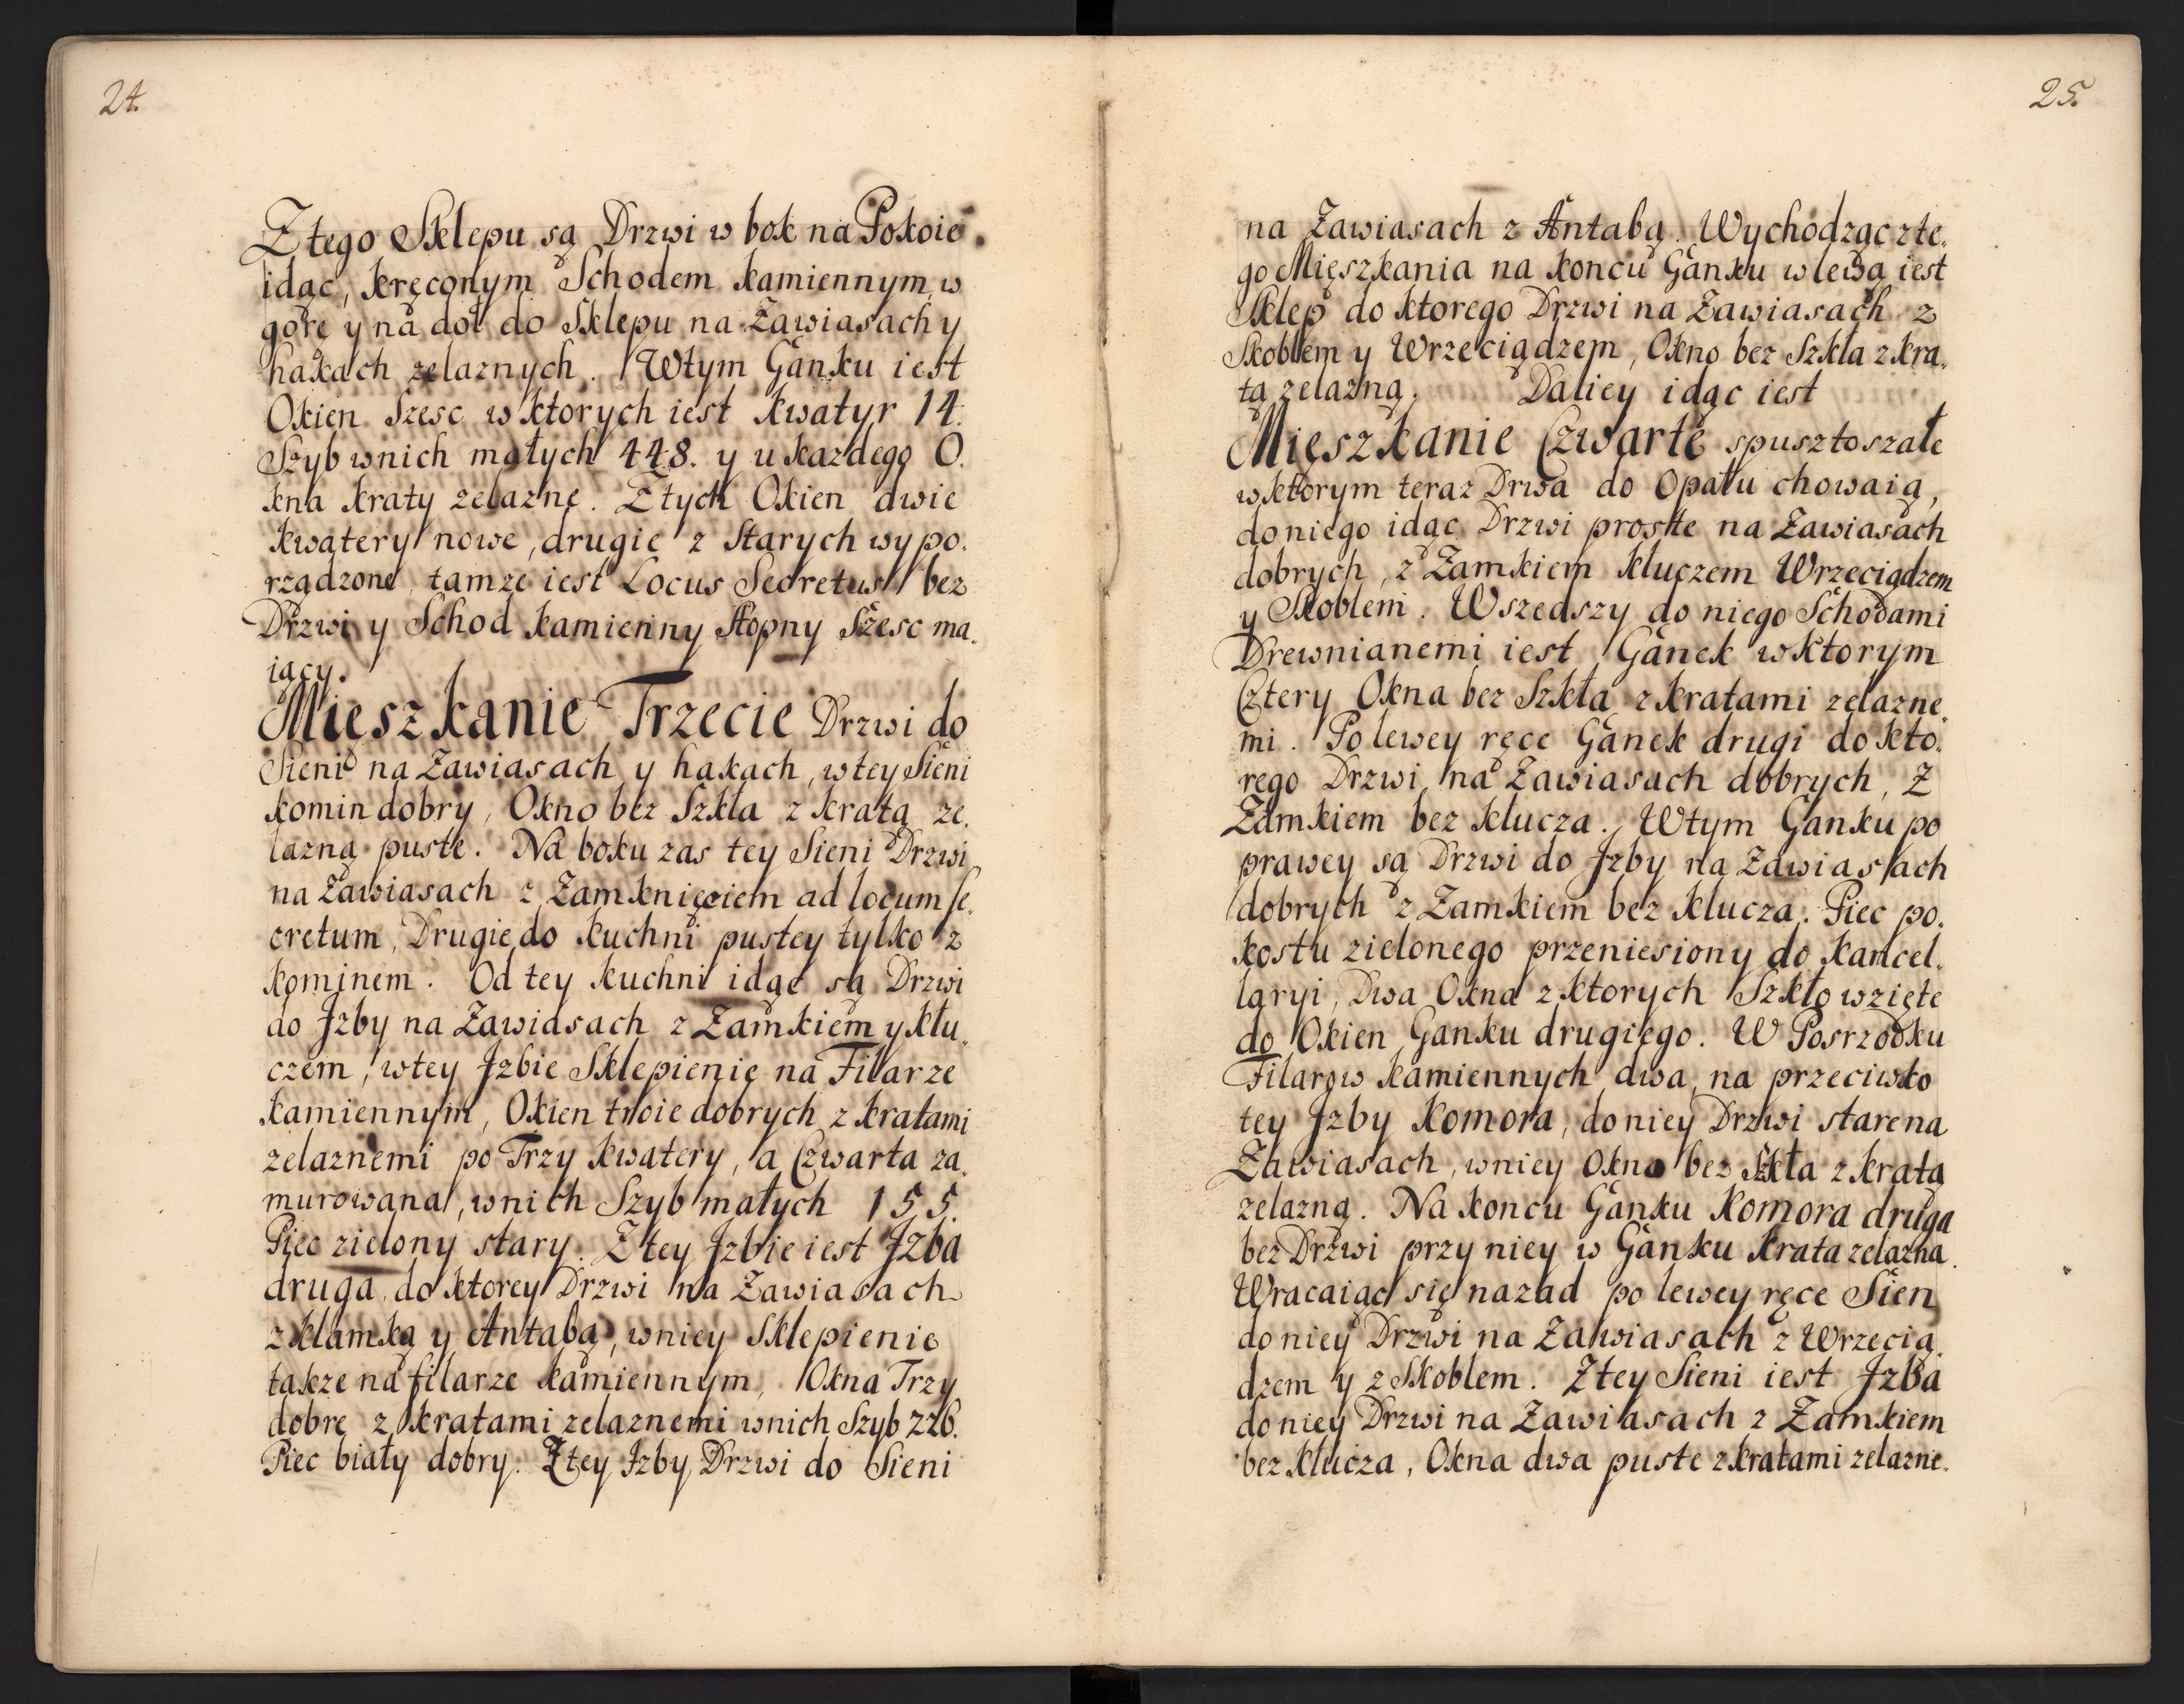 24.
Z tego Sklepu są Drzwi w bok na Pokoie
idąc, kręconym Schodem kamiennym w
gorę y na doł do Sklepu na Zawiasach y
hakach zelaznych. Wtym Ganku iest
Okien Szesc w ktorych iest kwatyr 14.
Szyb wnich małych 448. y u kazdego O.
kna kraty zelazne. Ztych Okien dwie
kwatery nowe, drugie z Starych wypo.
rządzone, tamze iest Locus Secretus bez
Drzwi y Schod kamienny Stopny Szesc ma.
iący.
Mieszkanie Trzecie Drzwi do
Sieni na Zawiasach y hakach, wtey Sieni
komin dobry, Okno bez Szkła z kratą ze.
lazną puste. Na boku zas tey Sieni Drzwi
na Zawiasach z Zamknięciem ad locum se.
cretum, Drugie do kuchni pustey tylko z
kominem. Od tey kuchni idąc są Drzwi
do Jzby na Zawiasach z Zamkiem y klu.
czem, wtey Jzbie Sklepienie na Filarze
kamiennym, Okien troie dobrych z kratami
zelaznemi po Trzy kwatery, a Czwarta za.
murowana, wnich Szyb małych 155.
Piec zielony stary. Ztey Jzbie iest Jzba
druga, do ktorey Drzwi na Zawiasach
z klamką y Antabą, wniey Sklepienie
takze na filarze kamiennym, Okna Trzy
dobre z kratami zelaznemi wnich Szyb 226.
Piec biały dobry. Ztey Jzby Drzwi do Sieni
25.
na Zawiasach z Antabą. Wychodząc zte.
go Mięszkania na koncu Ganku w lewą iest
Sklep do ktorego Drzwi na Zawiasach z
Skoblem y Wrzeciądzem, Okno bez Szkła z kra.
tą zelazną. Daliey idąc iest
Mięszkanie Czwarte spusztoszałe
wktorym teraz Drwa do Opału chowaią,
doniego idąc Drzwi proste na Zawiasach
dobrych, z Zamkiem kluczem Wrzeciądzem
y Skoblem. Wszedszy do niego Schodami
Drewnianemi iest Ganek wktorym
Cztery Okna bez Szkła z kratami zelazne.
mi. Po lewey ręce Ganek drugi do kto.
rego Drzwi na Zawiasach dobrych, Z
Zamkiem bez klucza. Wtym Ganku po
prawey są Drzwi do Jzby na Zawiasach
dobrych z Zamkiem bez klucza. Piec po.
kostu zielonego przeniesiony do kancel.
laryi, Dwa Okna z ktorych Szkło wzięte
do Okien Ganku drugiego. W Posrzodku
Filarow kamiennych dwa, na przeciwko
tey Jzby Komora, do niey Drzwi stare na
Zawiasach, wniey Okno bez Szkła z kratą
zelazną. Na koncu Ganku Komora druga
bez Drzwi przy niey w Ganku krata zelazna.
Wracaiąc się nazad po lewey ręce Sien
do niey Drzwi na Zawiasach z Wrzecią.
dzem y z Skoblem. Ztey Sieni iest Jzba
do niey Drzwi na Zawiasach z Zamkiem
bez klucza, Okna dwa puste z kratami zelazne.